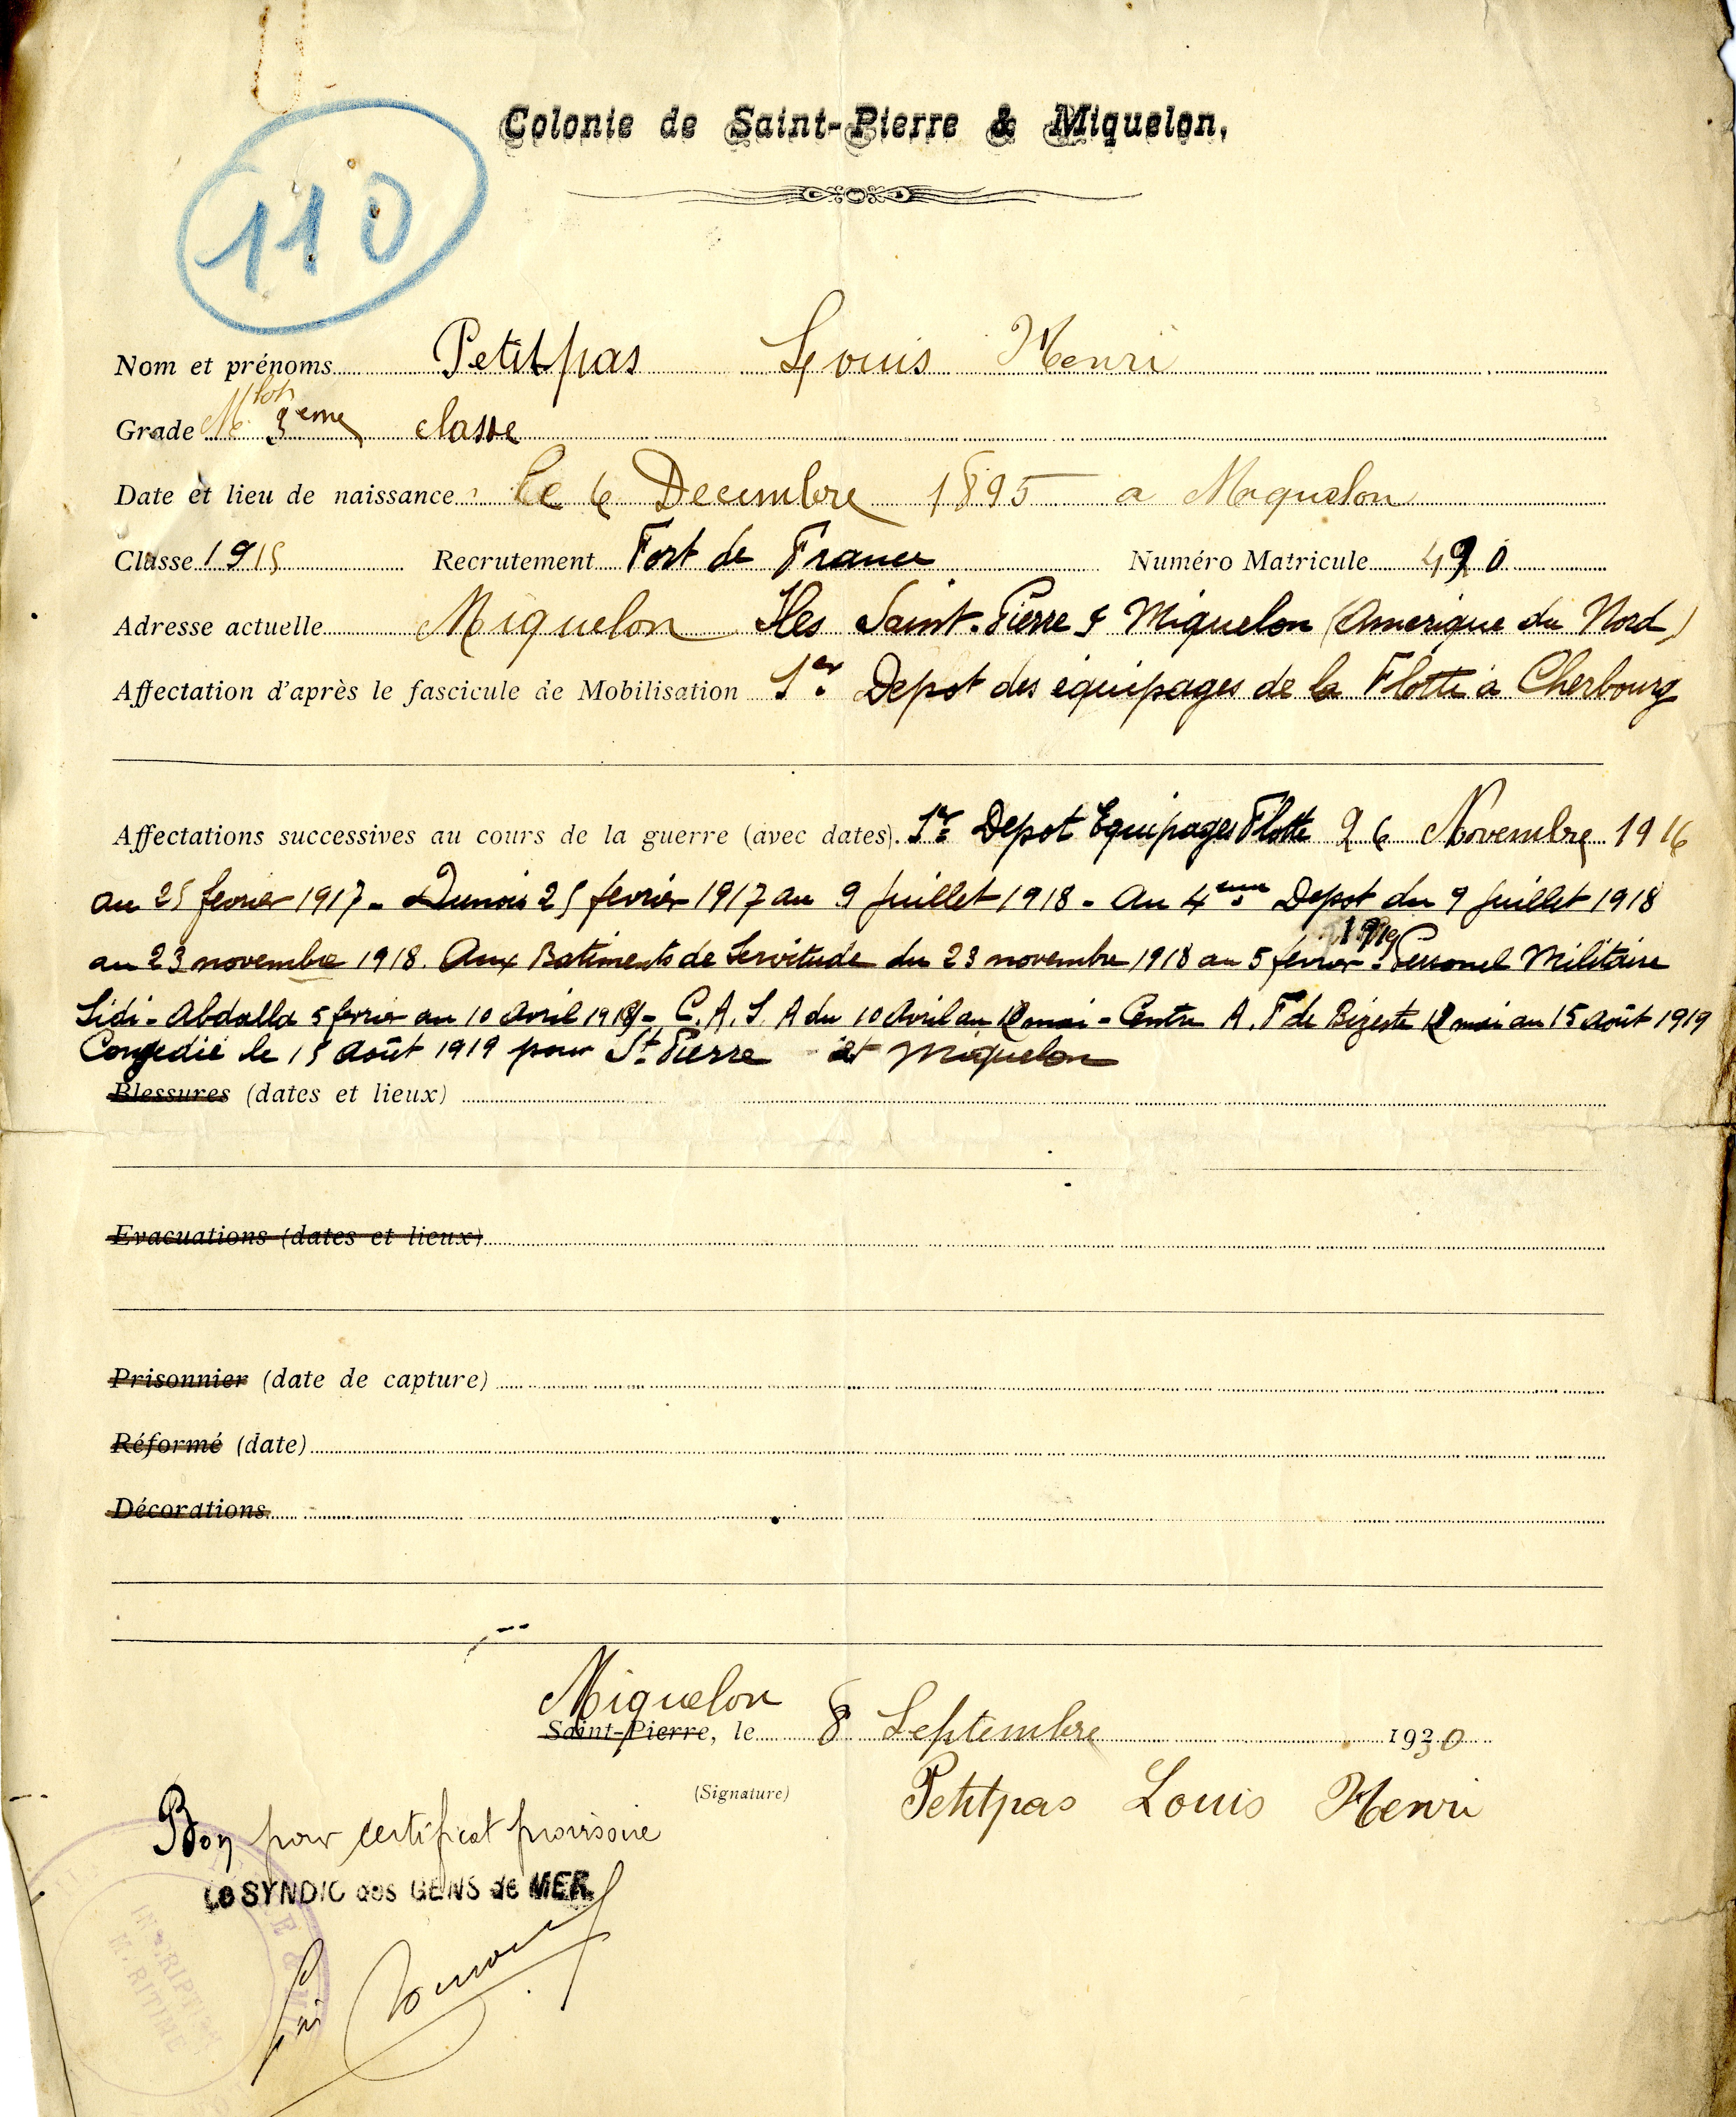 110
Colonie de Saint-Pierre & Miquelon.
Nom et prénoms Petitpas Louis Henri
Grade Mlot 3eme classe
Date et lieu de naissance le 6 Decembre 1895 a Miquelon
Classe 1915 Recrutement Fort de France Numéro Matricule 490
Adresse actuelle Miquelon Iles Saint-Pierre & Miquelon (Amerique du Nord)
Affectation d'après le fascicule de Mobilisation 1er Depot des équipages de la Flotte à Cherbourg
Affectations successives au cours de la guerre (avec dates). 1er Depot Equipages Flotte 26 Novembre 1916
au 25 fevrier 1917 - Dunois 25 fevrier 1917 au 9 Juillet 1918 - Au 4eme Depot du 9 Juillet 1918
au 23 novembre 1918. Aux Batiments de Servitude du 23 novembre 1918 au 5 fevrier 1919 - Personel Militaire
Sidi-Abdalla 5 fevrier au 10 Avril 1919 - C.A.S.A du 10 Avril au mai - Centre A.F de Bizerte mai au 15 Août 1919
Congedié le 15 Août 1919 pour St Pierre et Miquelon
Blessures (dates et lieux)
Evacuations (dates et lieux)
Prisonnier (date de capture)
Réformé (date)
Décorations
Miquelon
Saint-Pierre, le 8 Septembre 1930
(Signature) Petitpas Louis Henri
Bon pour certificat provisoire
Le SYNDIC des GENS de MER
INSCRIPTION
MARITIME